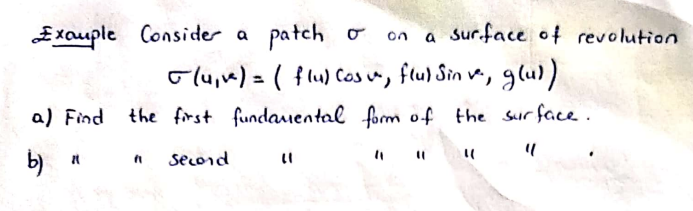 Example Consider a patch σ on a surface of revolution
σ(u,v) = ( f(u) Cos v, f(u) Sin v, g(u) )
a) Find the first fundamental form of the surface.
b) " " second " " " " " .